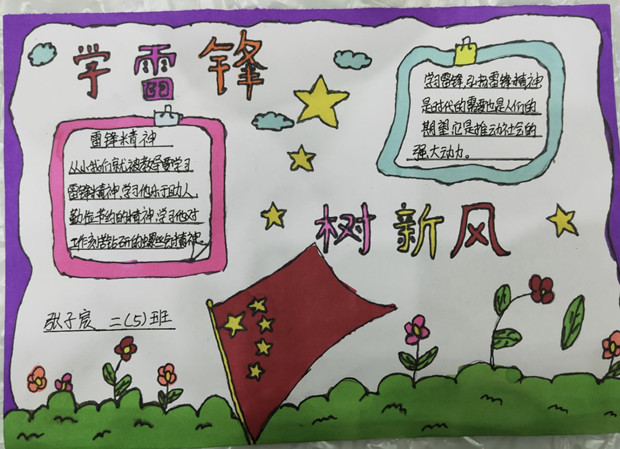 学雷锋
学习雷锋,弘扬雷锋精神
是时代的需要也是人们的
期望,它是推动社会的
强大动力。
雷锋精神
从小我们就被教导要学习
雷锋精神,学习他乐于助人,
勤俭节约的精神,学习他对
工作刻苦钻研的螺丝钉精神
树新风
张子宸 二(5)班